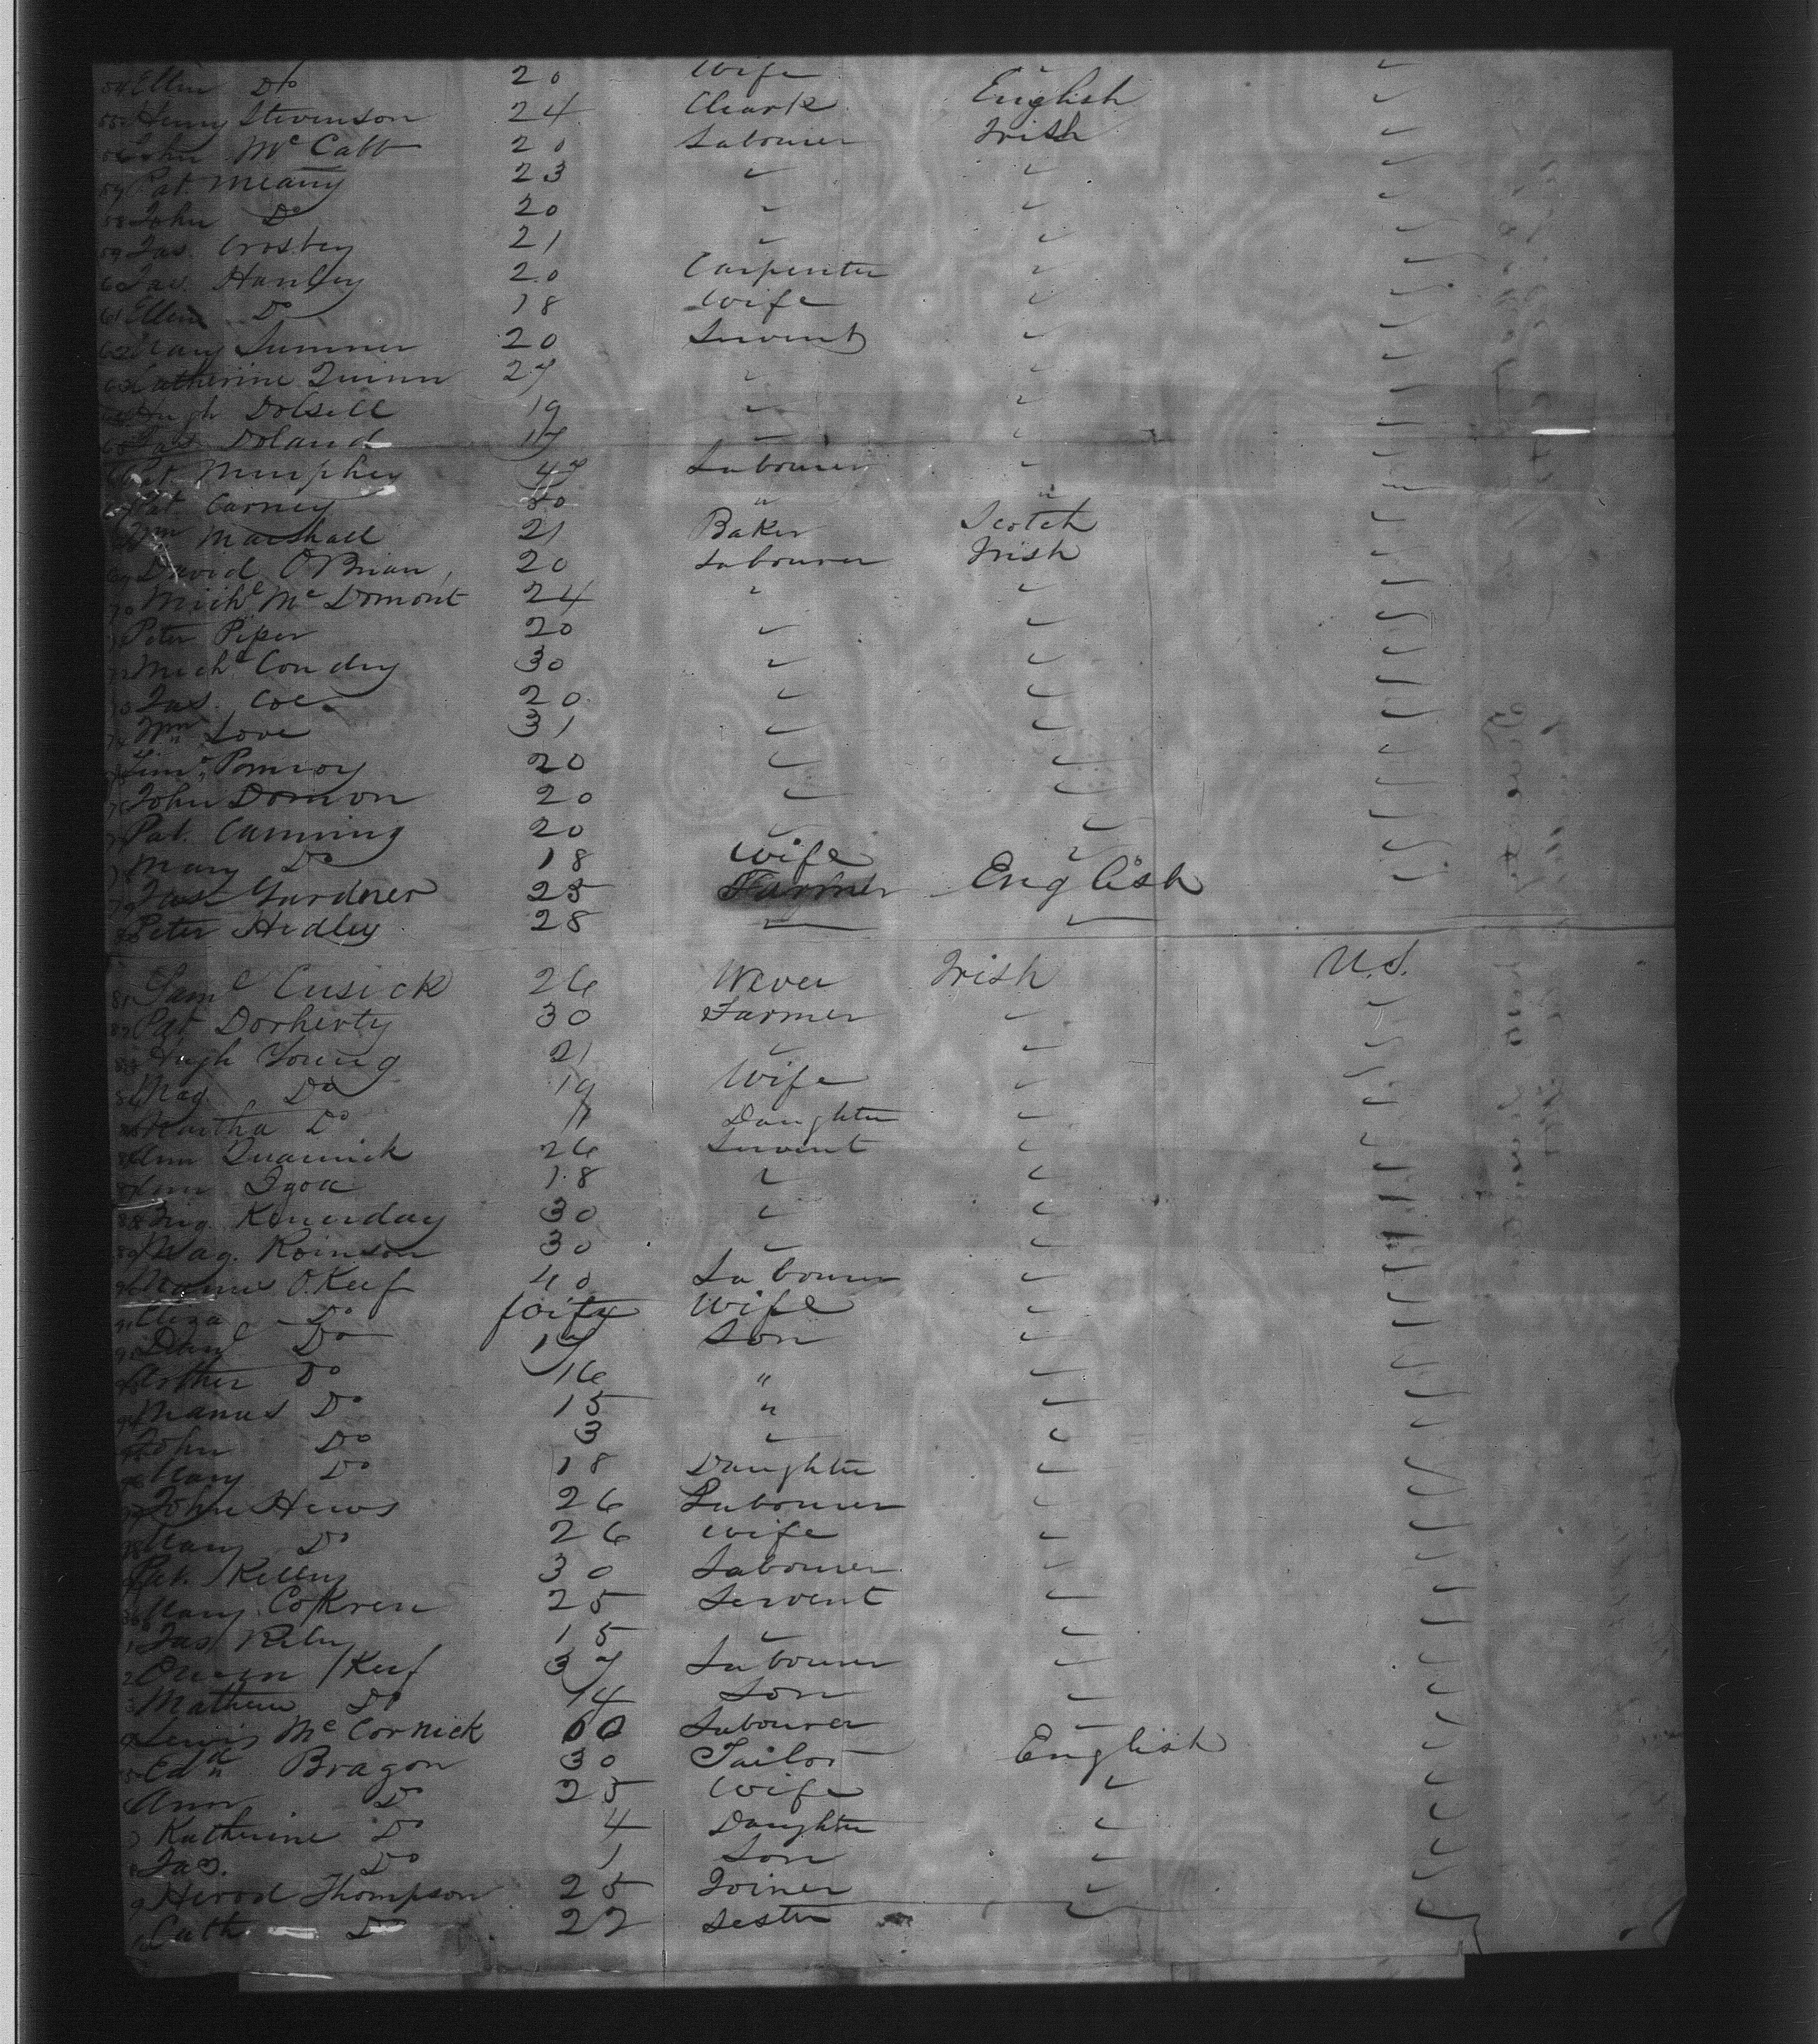 54 Ellin Do 20 Wife " "
55 Henry Stevenson 24 Cleark English "
56 John Mc Cabb 20 Labourer Irish "
57 Pat. Meany 23 " " "
58 John Do 20 " " "
59 Jas. Crosbey 21 " " "
60 Jas. Hanley 20 Carpenter " "
61 Ellin Do 18 Wife " "
62 Mary Sumner 20 Servent " "
63 Catherine Quinn 27 " " "
64 Hugh Dolsell 19 " " "
65 Jas Doland 17 " " "
66 Pat. Murphey 47 Labourer " "
67 Pat. Carney 30 " " "
68 Wm Marshall 21 Baker Scotch "
69 David O'Brian 20 Labourer Irish "
70 Michl Mc Domont 24 " " "
71 Peter Piper 20 " " "
72 Michl Condry 30 " " "
73 Jas. Coe 20 " " "
74 Wm Love 31 " " "
75 Timo Pomroy 20 " " "
76 John Domon 20 " " "
77 Pat. Canning 20 " " "
78 Mary Do 18 Wife " "
79 Jas Gardner 25 Farmer English "
80 Peter Hedley 28 " " "
81 Saml Cusick 26 Wever Irish U.S.
82 Pat Dorherty 30 Farmer " "
83 Hugh Young 21 " " "
84 Mag. Do 19 Wife " "
85 Martha Do Daughter " "
86 Ann 26 Servent " "
87 Ann Igoa 18 " " "
88 30 " " "
89 Mag. Roinson 30 " " "
90 O.Keef 40 Labourer " "
91 Eliza Do forty Wife " "
92 Danl Do 17 Son " "
93 Arther Do 16 " " "
94 Manus Do 15 " " "
95 John Do 3 " " "
96 Mary Do 18 Daughter " "
97 John Hews 26 Labourer " "
98 Mary Do 26 Wife " "
99 Pat. Kelley 30 Labourer " "
Mary Cokren 25 Servent " "
1 Jas Rily 15 " " "
2 Owen Keef 37 Labourer " "
3 Mathew Do 14 Son " "
4 Lewis Mc Cornick 60 Labourer " "
5 Edn Bragon 30 Tailor English "
6 Ann Do 25 Wife " "
7 Katherine Do 4 Daughter " "
8 Jas. Do 1 Son " "
9 Thompson 25 Joiner " "
Cath. Do 22 Sester " "